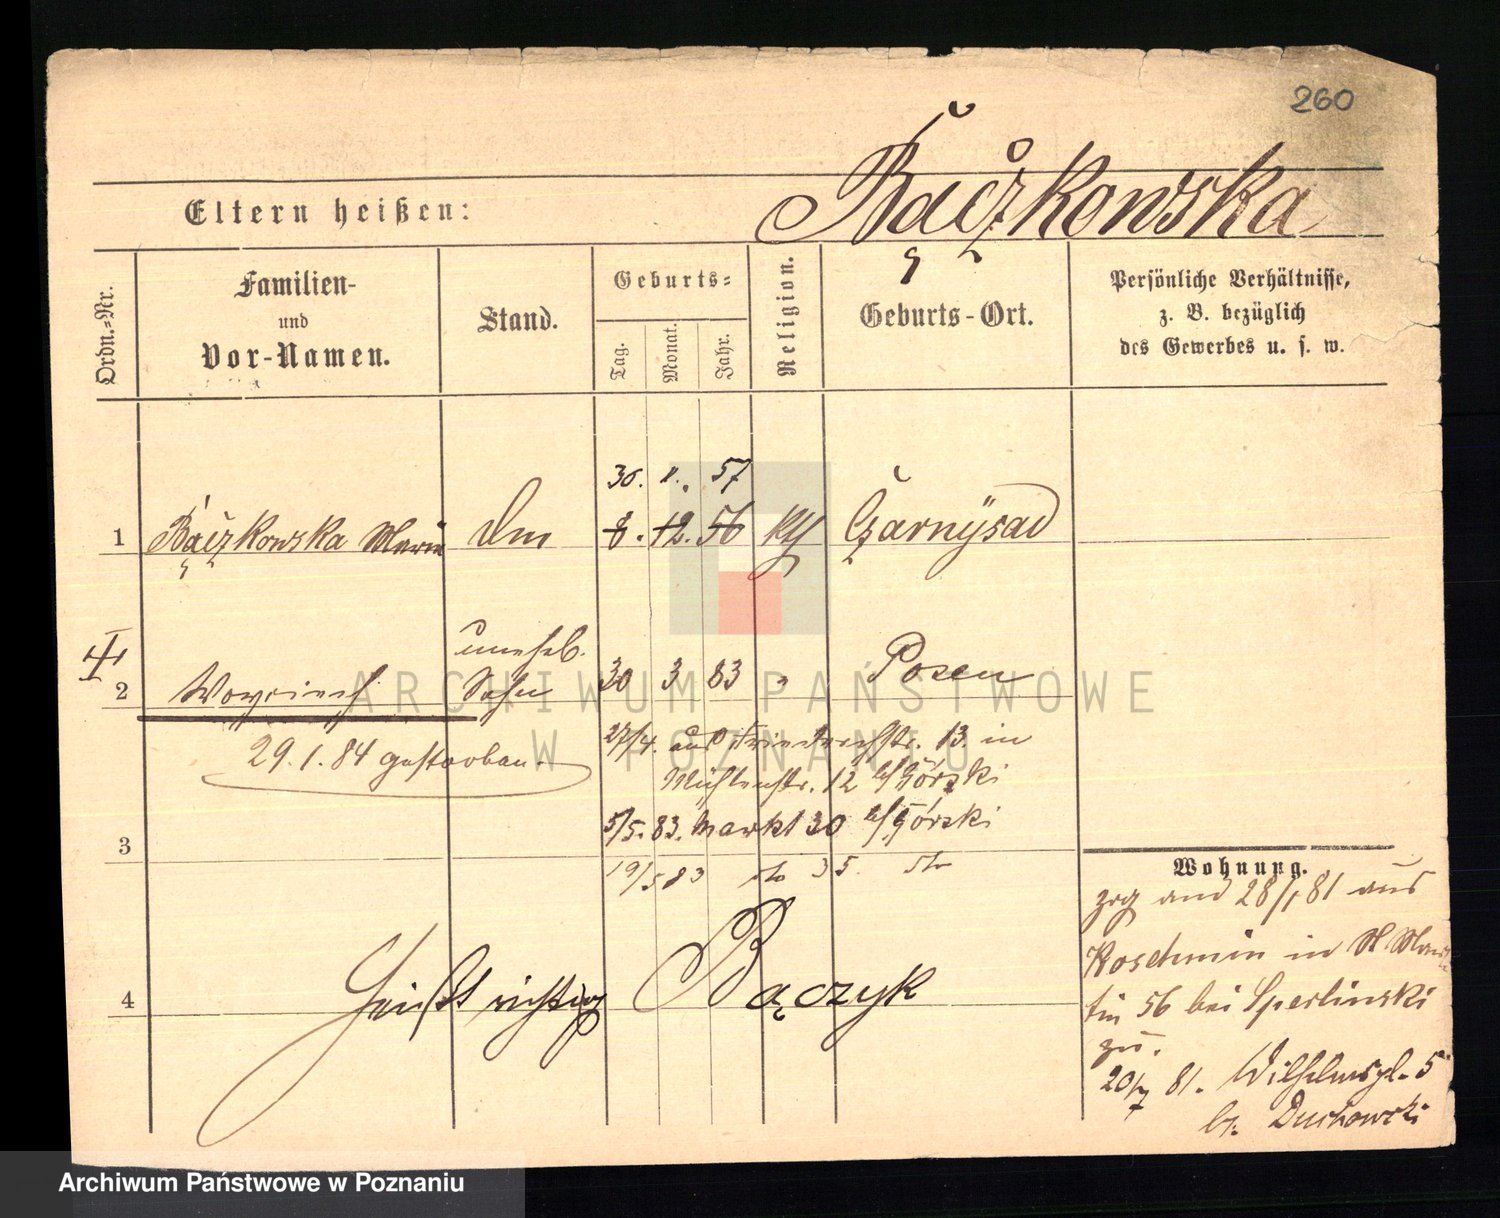 260
Eltern heißen:
Bączkowska
Ordn.=Nr.
Familien-
und
Vor-Namen.
Stand.
Geburts=
Tag.
Monat.
Jahr.
Religion.
Geburts-Ort.
Persönliche Verhältnisse,
z. B. bezüglich
des Gewerbes u. s. w.
30. 11. 57
1 Bączkowska Marie 8. 12. 56 kth Czarnÿsad
unehel.
2 Woyciech Sohn 30 3 83 " Posen
29.1.84 gestorben.
27/4. aus Friedrichstr. 13. in
Mühlenstr. 12 b/Górski
3 5/5. 83. Markt 30 b/Górski
19/5 83 do 35. do
4 Heißt richtig Bączyk
Wohnung.
zog am 28/1 81 aus
Koschmin in St Mar
tin 56 bei Sperlinski
zu.
20/7 81. Wilhelmspl. 5
b.
ARCHIWUM PAŃSTWOWE
W POZNANIU
Archiwum Państwowe w Poznaniu